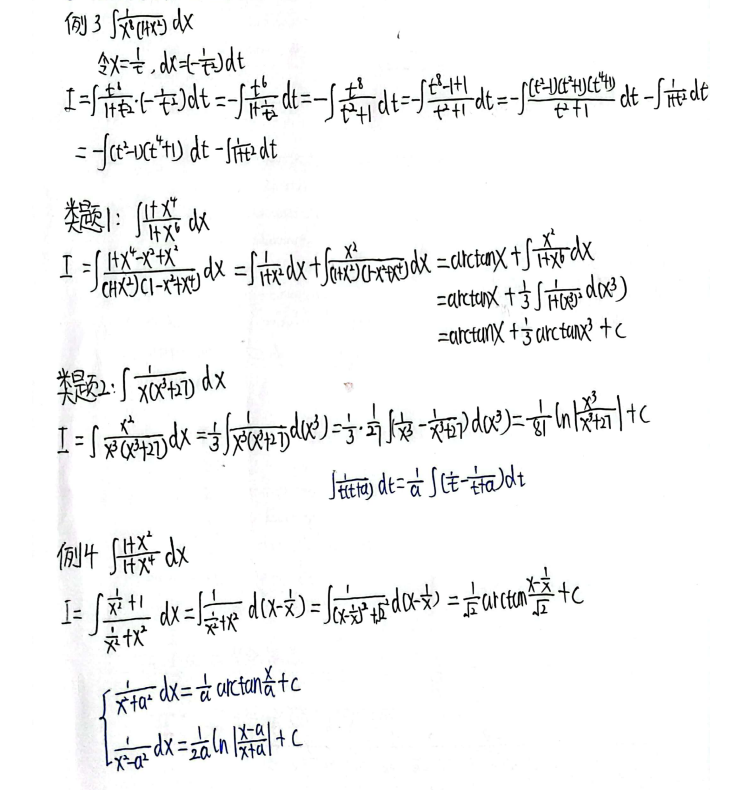 例3 ∫1/(x⁸(1+x²)) dx
令x=1/t , dx=(-1/t²)dt
I=∫t⁸/(1+1/t²)·(-1/t²)dt=-∫t⁶/(1+1/t²)dt=-∫t⁸/(t²+1)dt=-∫(t⁸-1+1)/(t²+1)dt=-∫(t²-1)(t²+1)(t⁴+1)/(t²+1) dt-∫1/(1+t²)dt
=-∫(t²-1)(t⁴+1) dt-∫1/(1+t²)dt
类题1: ∫(1+x⁴)/(1+x⁶) dx
I=∫(1+x⁴-x²+x²)/((1+x²)(1-x²+x⁴))dx=∫1/(1+x²)dx+∫x²/((1+x²)(1-x²+x⁴))dx=arctanx+∫x²/(1+x⁶)dx
=arctanx+1/3∫1/(1+(x³)²)d(x³)
=arctanx+1/3 arctanx³+c
类题2:∫1/(x(x³+27)) dx
I=∫x²/(x³(x³+27))dx=1/3∫1/(x³(x³+27))d(x³)=1/3·1/27∫(1/x³-1/(x³+27))d(x³)=1/81 ln|x³/(x³+27)|+c
∫1/(t(t+a)) dt=1/a∫(1/t-1/(t+a))dt
例4 ∫(1+x²)/(1+x⁴) dx
I=∫(1/x²+1)/(1/x²+x²) dx=∫1/(1/x²+x²) d(x-1/x)=∫1/((x-1/x)²+√2²)d(x-1/x)=1/√2 arctan (x-1/x)/√2+c
{1/(x²+a²) dx=1/a arctan x/a+c
1/(x²-a²) dx=1/2a ln|(x-a)/(x+a)|+c